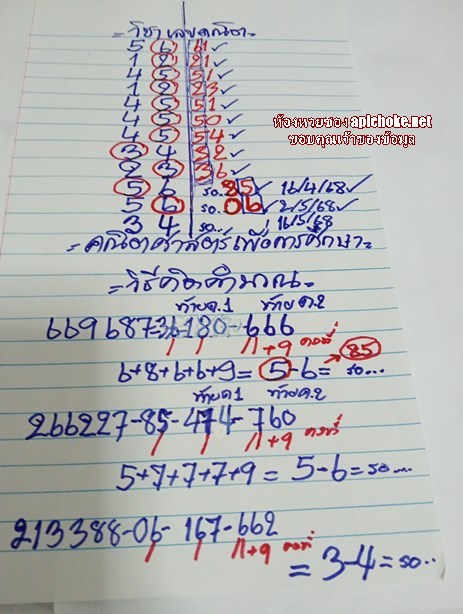 = วิชาเลขคณิต =
5 6 61 ✓
1 2 21 ✓
4 5 51 ✓
1 2 23 ✓
4 5 51 ✓
4 5 50 ✓
4 5 54 ✓
3 4 32 ✓
2 3 36 ✓
5 6 รอ.85 ✓ 16/4/68 ✓
5 6 รอ.06 ✓ 2/5/68 ✓
3 4 รอ... 16/5/68
ห้องหวยของ apichoke.net
ขอบคุณเจ้าของข้อมูล
= คณิตศาสตร์เพื่อการศึกษา =
= วิธีคิดคำนวณ =
ท้าย ด.1 ท้าย ด.2
669687-36-180-666
+9 คงที่
6+8+6+6+9= 5-6= รอ... 85
ท้าย ด.1 ท้าย ด.2
266227-85-474-760
+9 คงที่
5+7+7+7+9 = 5-6 = รอ....
213388-06-167-662
+9 คงที่
= 3-4 = รอ..